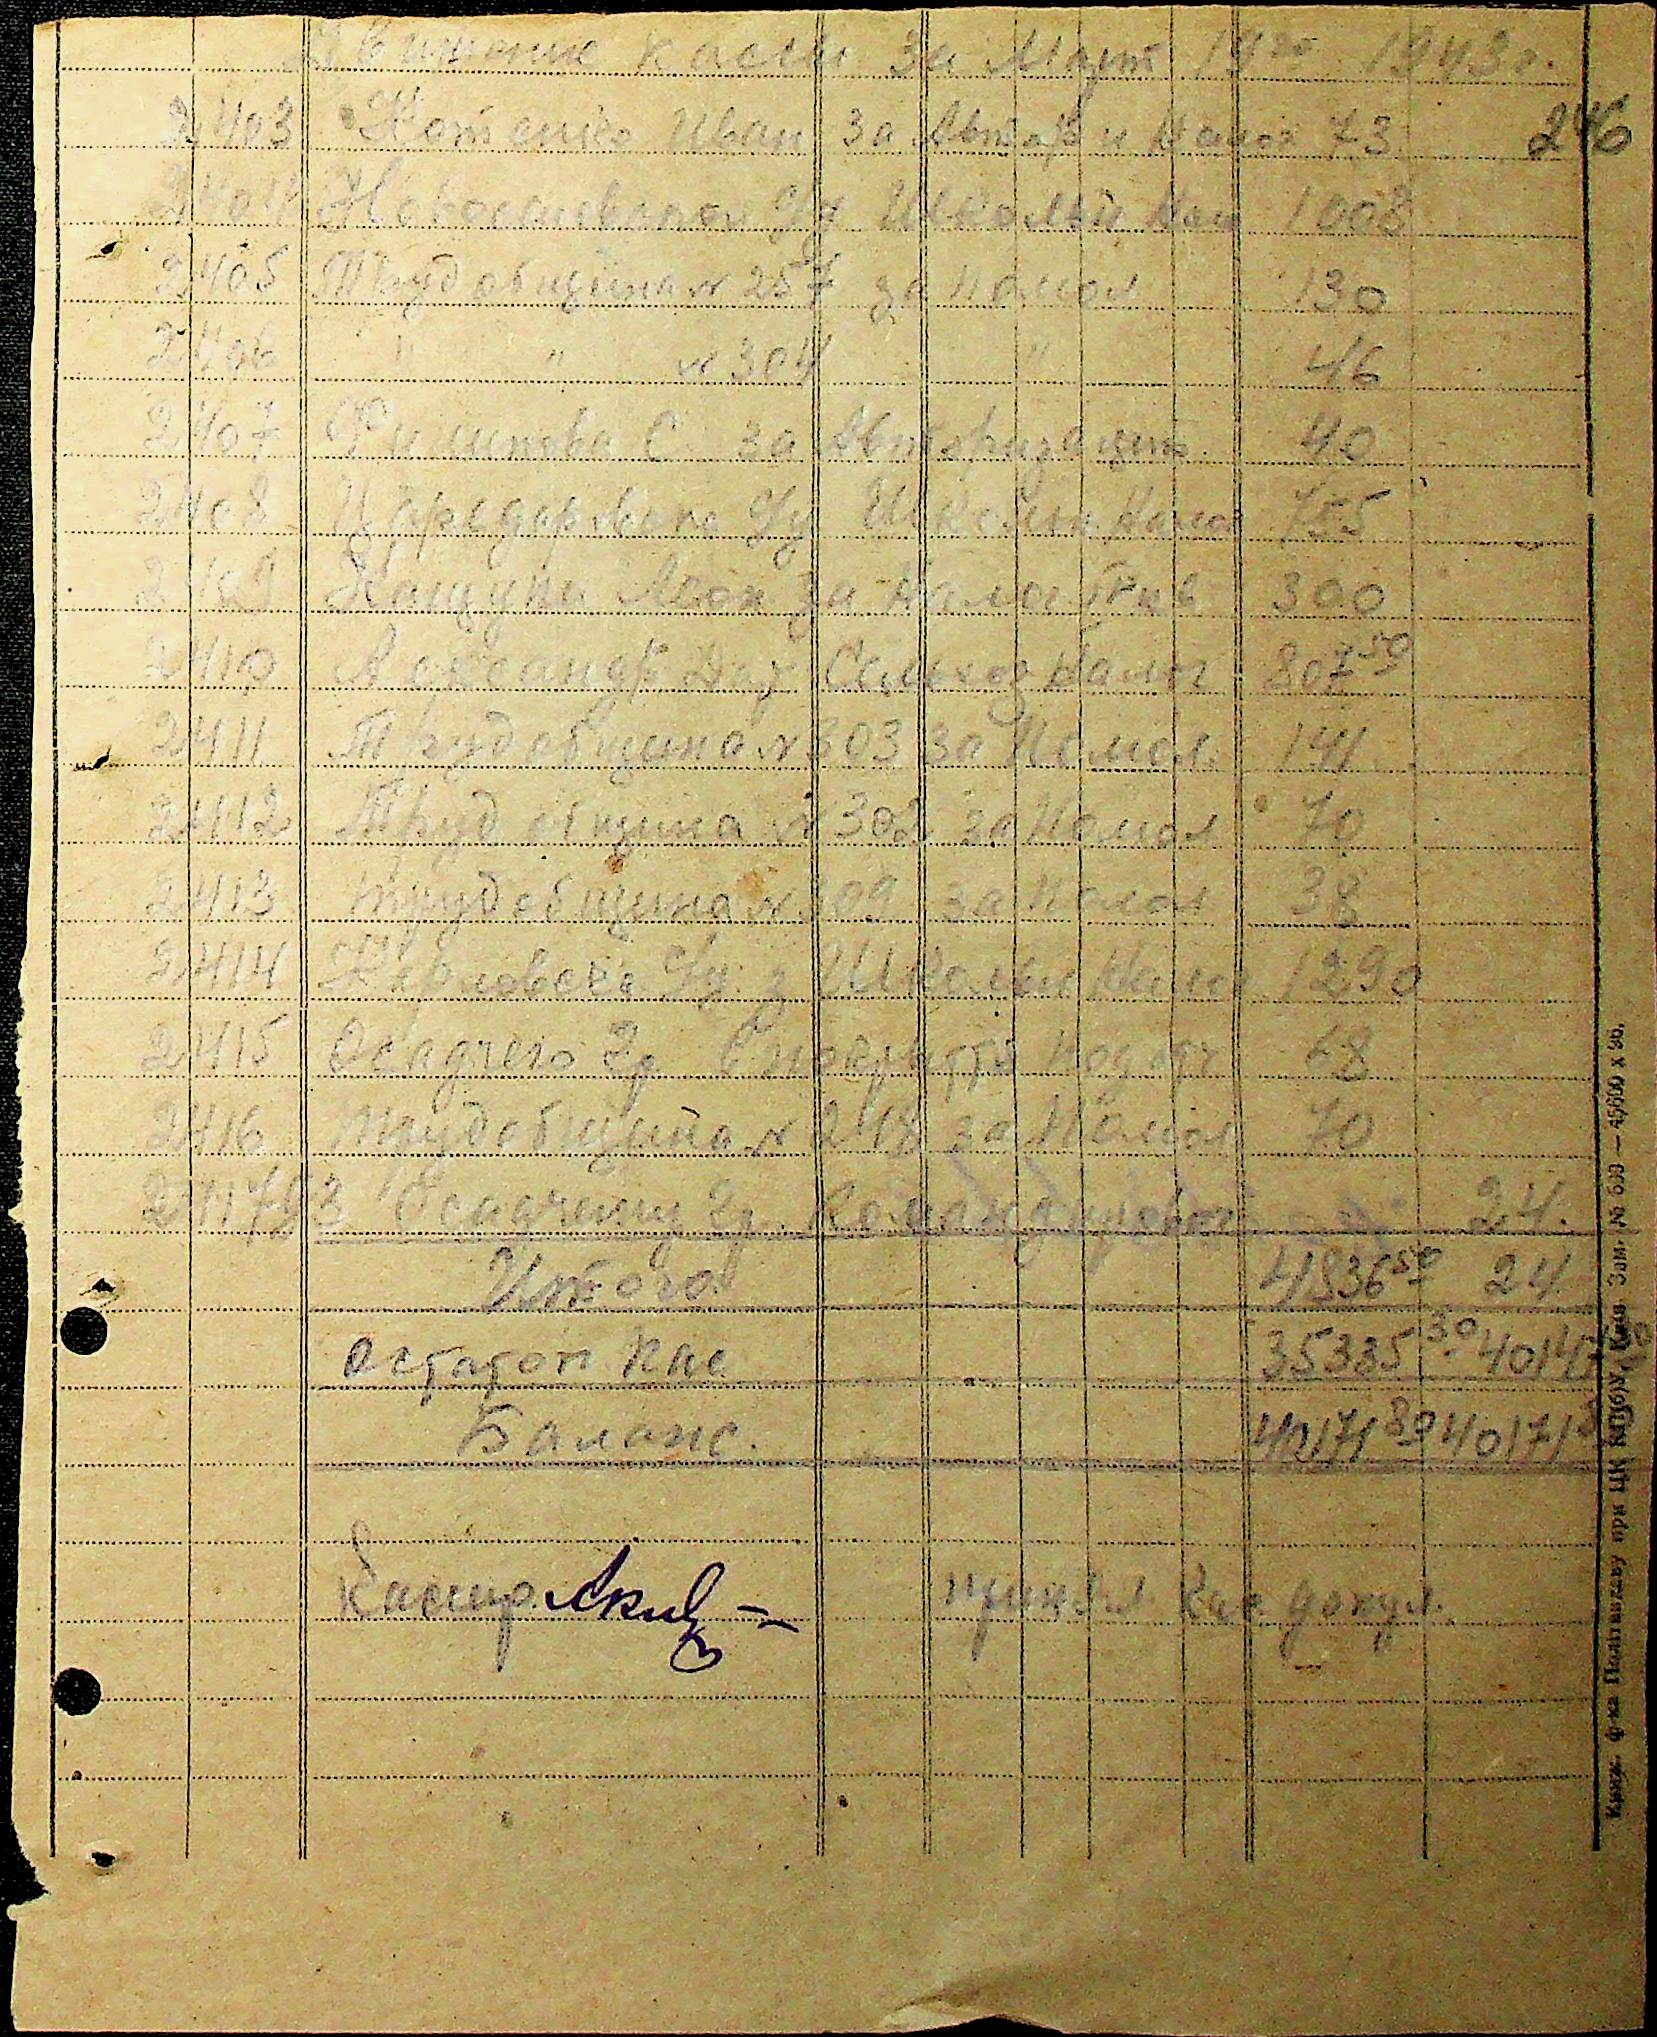 Движение кассы за Март 19го 1943 г.
246
2403 Котенко Иван за Авториз и налог 73
2404 Новоселовская Уп Школьн нал 1008
2405 Труд община № 257 за помол 130
2406 " " № 304 " 46
2407 Филипова С за Авторизацию 40
2408 Цареdаровка Уп Школьн налог 755
2409 за налог 300
2410 Александр Дар Сельхоз налог 807 50
2411 Труд община № 303 за Помол 141
2412 Труд община № 302 за Помол 70
2413 Труд община № 309 за Помол 38
2414 Карловска Уп з Школьн Налог 1290
2415 Осадчего Гр подотч 68
2416 Труд община № 248 за Помол 70
793 Осадчему Гр. Командировоч 24.
Итого 4836 50 24
Остаток Кас 35335 30 40147 80
Баланс. 40171 80 40171 80
Кассир Принял Кас докум.
"
Книж. ф-ка Політвидаву при ЦК КП(б)У, Київ Зам. № 600 — 45600 х 96.